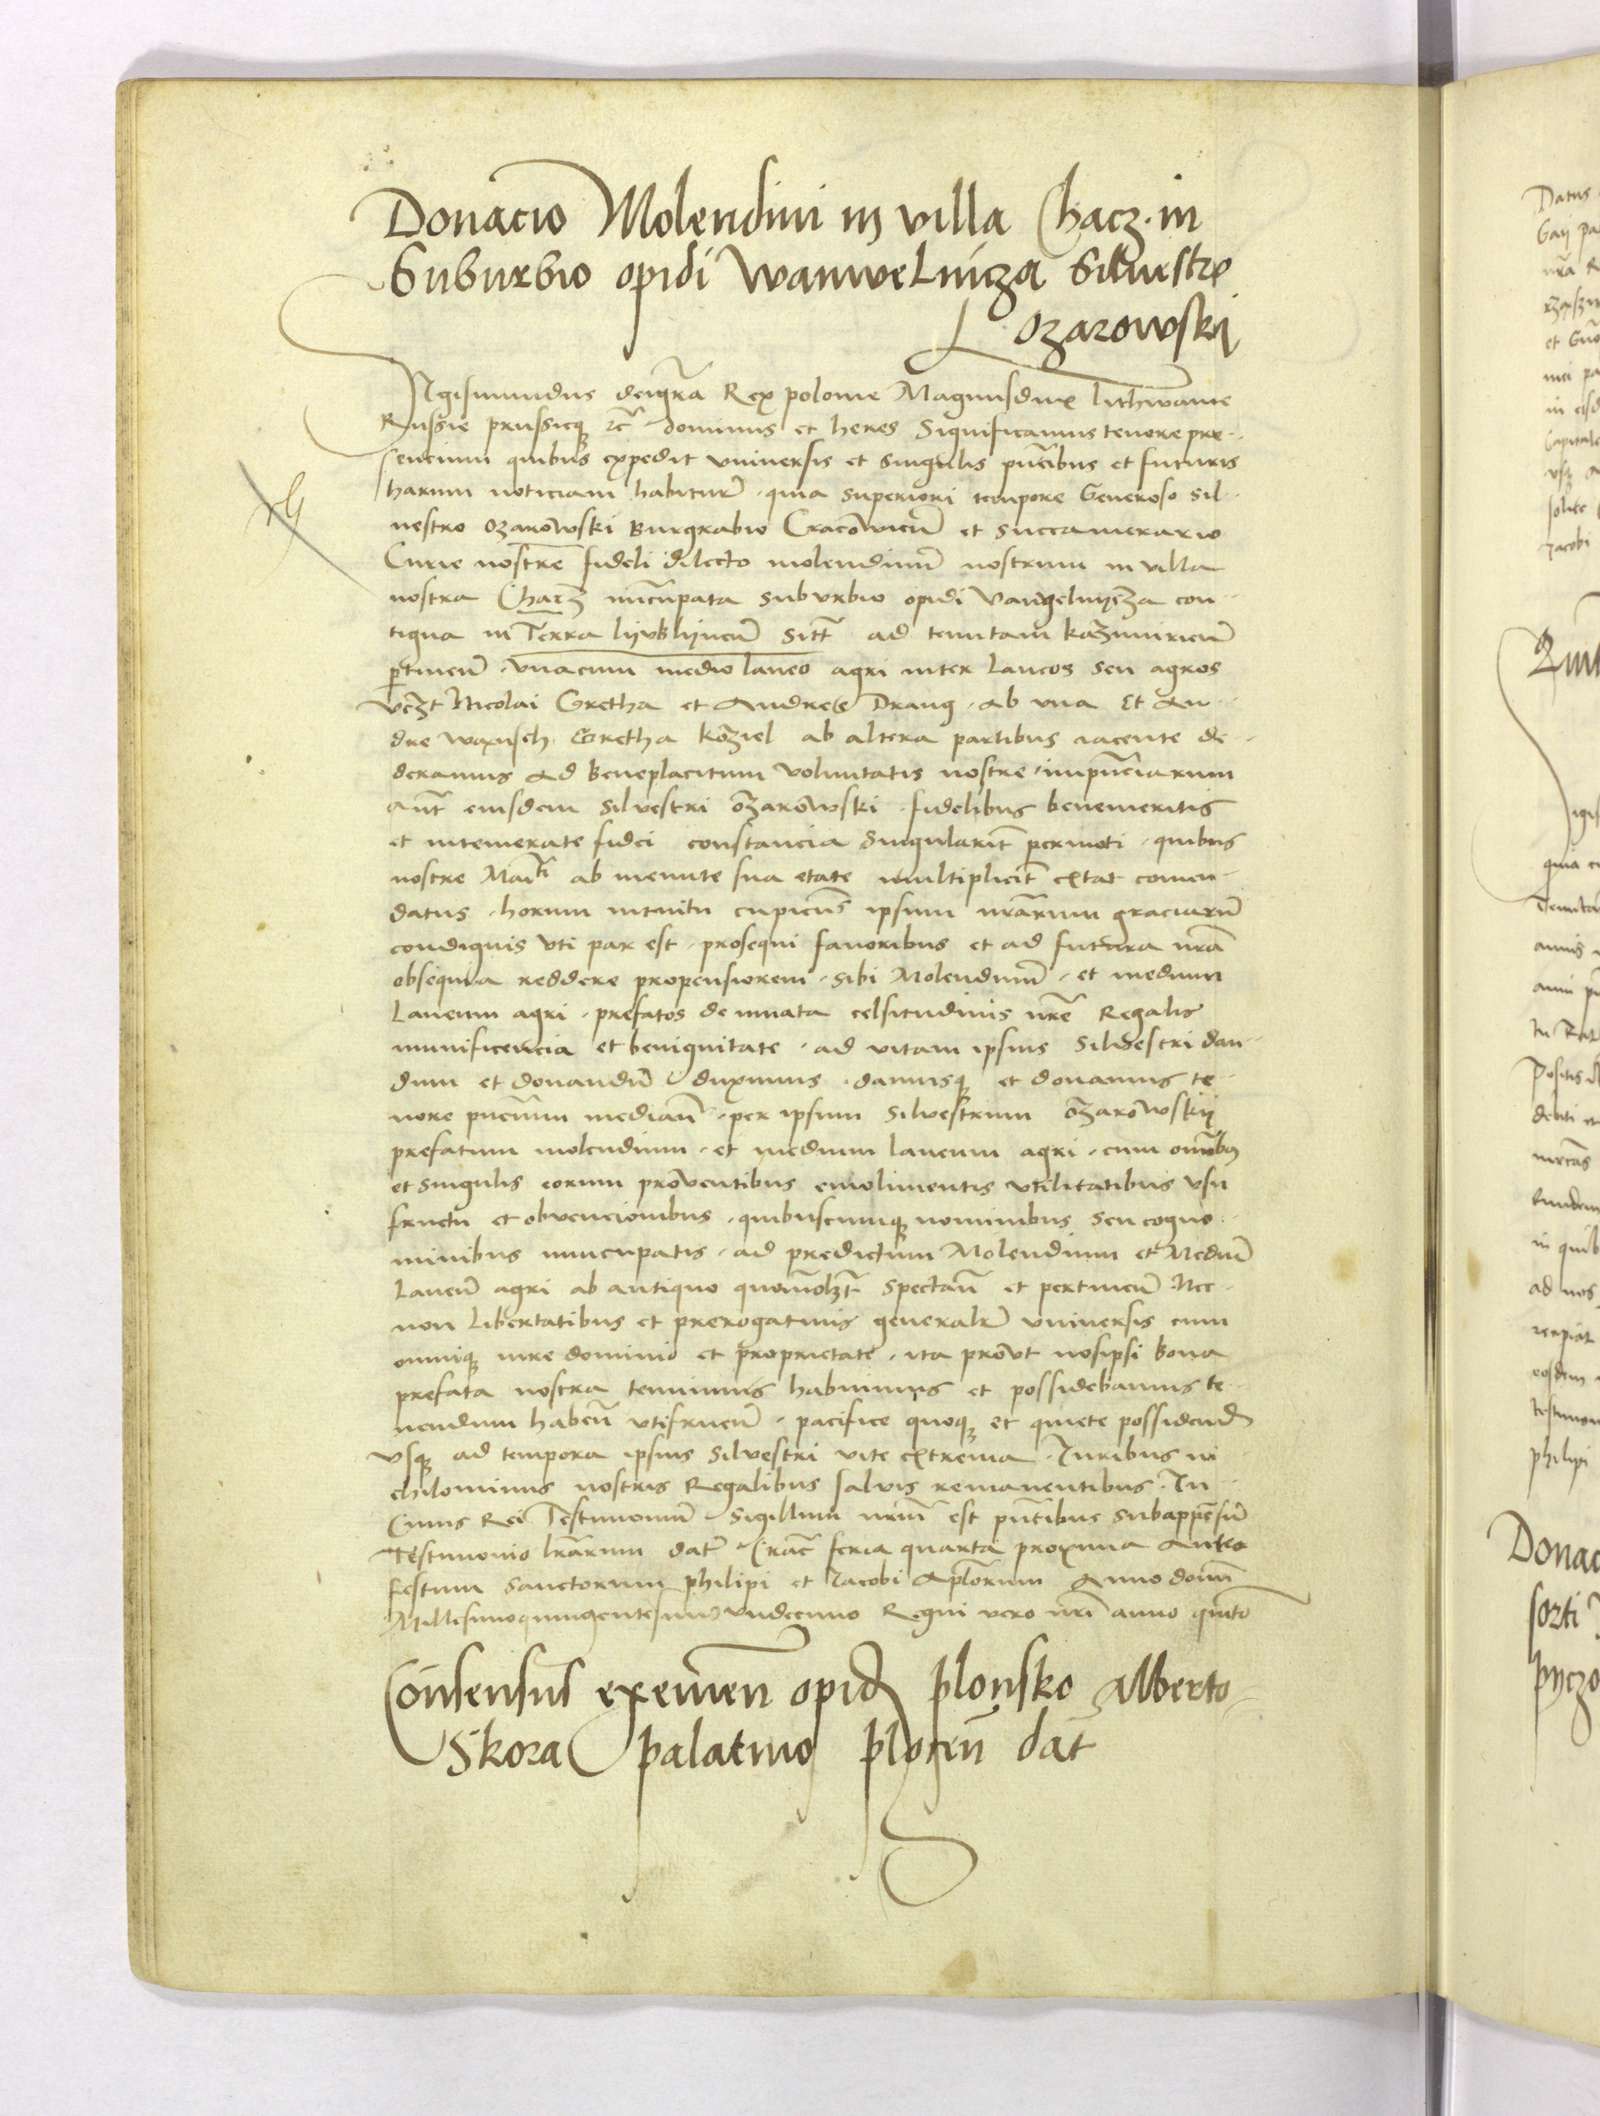 Donacio Molendini in villa Chacz in
Suburbio opidi Wanwelniza Siluestro
Ozarowskij
Sigismundus deigra Rex polonie Magnusdux lithwanie
Russie prussieq̢ etc dominus et heres Significamus tenore pre-
sencium quibus expedit vniversis et singulis pn̄tibus et futuris
harum noticiam habitur̄ quia superiori tempore Generoso Sil-
uestro Ozarowski Burgrabio Cracovien̄ et succamerario
Curie nostre fideli dilecto molendinu̅ nostrum in villa
nostra Chacz nuncupata suburbio opidi Vangelnijcza con-
tigua in Terra lijvblijnen̄ sitt̄ ad tenutam kazimirien̄
pertinen̄ vnacum medio laneo agri inter laneos seu agros
vcz̄t Nicolai Gretha et Andree Drang ab vna Et An-
dre Waxusch Gretha koziel ab altera partibus iacente de-
deramus ad beneplacitum voluntatis nostre impn̄ciarum
aut̄ eiusdem Silvestri Ozarowski fidelibus benemeritis
et intemerate fidei constancia singularit̄ permoti quibus
nostre Maiti ab ineunte sua etate multiplicit̄ extat comen-
datus horum intuitu cupien̄s ipsum nr̄arum graciaru̅
condignis vti par est prosequi favoribus et ad futura nr̄a
obsequia reddere propensiorem sibi Molendinu̅ et medium
Laneum agri prefatos de innata celsitudinis nr̄e Regalis
munificencia et benignitate ad vitam ipsius Silvestri dan-
dum et donandu̅ duximus damusq̢ et donamus te-
nore pn̄cium median̄ per ipsum Silvestrum Ozarowskij
prefatum molendinum et medium laneum agri cum omnibus
et singulis eorum proventibus emolimentis vtilitatibus vsu
fructu et obvencionibus quibuscumq̢ nominibus seu cogno-
minibus nuncupatis ad predictum Molendinum et Mediu̅
Laneu̅ agri ab antiquo quomolz̄t spectan̄ et pertinen̄ Nec-
non Libertatibus et prerogativis generalr̄ vniversis cum
omniq̢ iure dominio et proprietate ita provt nosipsi bona
prefata nostra tenuimus habuimus et possidebamus te-
nendum haben̄ vtifruen̄ pacifice quoq̢ et quiete possidend̄
Vsq̢ ad tempora ipsius Silvestri vite extrema Iuribus ni-
chilominus nostris Regalibus salvis remanentibus In
Cuius Rei Testimoniu̅ Sigillum nrm̄ est pn̄tibus subappensu̅
Testimonio lr̄arum dat̄ Crac̄ feria quarta proxima Ante
festum Sanctorum philipi et Iacobi Ap̄lorum Anno domi̅
Millesimoquingentesimo vndecimo Regni vero nr̄i anno quinto
Consensus exemen̄ opid̄ plonsko Alberto
Skora palatino plocen̄ dat̄